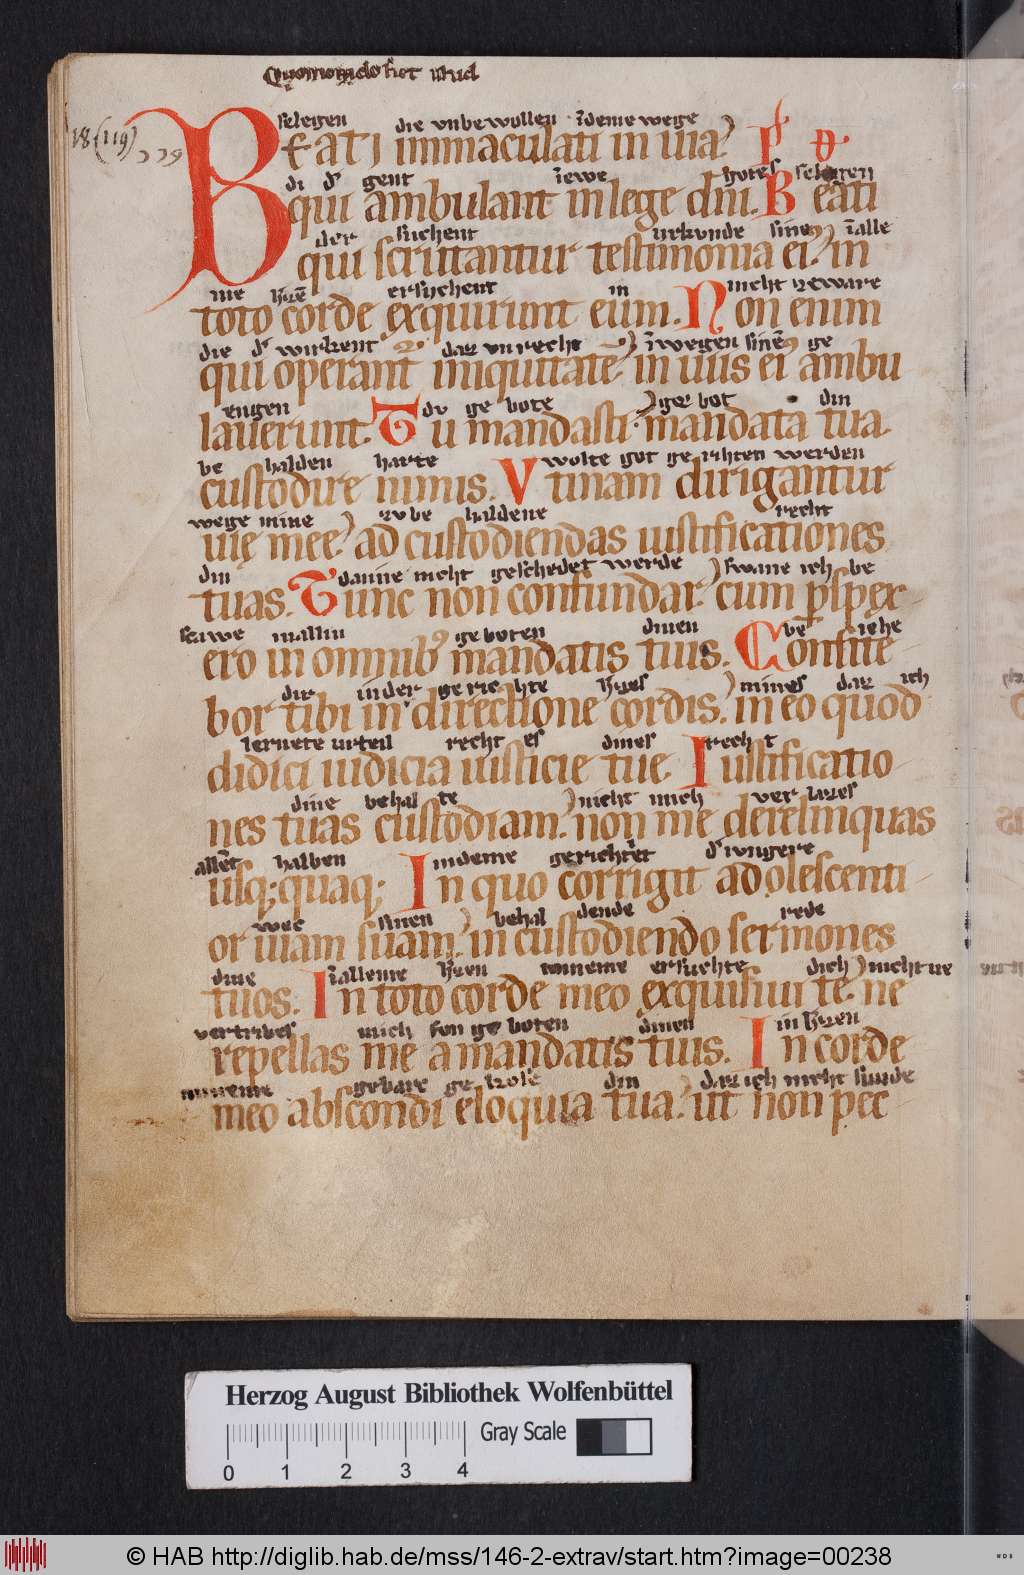 Quomodo fiet istud
selegen die vnbewollen īdeme wege
18 (119) 119
Beati immaculati in uia.
di d' gent īewe gotes selegen
qui ambulant in lege dn̄i. Beati
der suchent urkunde sine īalle
qui scrutantur testimonia ei' in
me h'rē ersuchent in nicht zeware
toto corde exquirunt eum. Non enim
die d' wirkent daz vnrecht īwegen sinē ge
qui operant iniquitatē in uiis ei' ambu
engen dv ge bote gebot din
lauerunt. Tu mandasti mandata tua
be halden harte wolte got gerihten werden
custodire nimis. Vtinam dirigantur
wege mine zv be haldene recht
uię meę ad custodiendas iustificationes
din danne nicht geschedet werde swane ich be
tuas. Tunc non confundar. cum p̄spex
scawe inallin geboten dinen be iehe
ero in omnib' mandatis tuis. Confite
dir inder gerichte h'zes mines daz ich
bor tibi in directione cordis. in eo quod
lernete urteil recht es dines recht
didici iudicia iusticie tue. Iustificatio
dine behal te nicht mich ver lazes
nes tuas custodiam. non me derelinquas
allēt halben indeme gerichtet d' iungere
usq; quaq; In quo corrigit adolescenti
wec sinen behal dende rede
or uiam suam. in custodiendo sermones
dine īalleme h'zen mineme ersuchte dich nicht ne
tuos. In toto corde meo exquisiui te. ne
vertribes mich fon geboten dinen in h'zen
repellas me a mandatis tuis. In corde
mineme gebare ge kose din daz ich nicht sunde
meo abscondi eloquia tua. ut non pec
Herzog August Bibliothek Wolfenbüttel
Gray Scale
0 1 2 3 4
© HAB http://diglib.hab.de/mss/146-2-extrav/start.htm?image=00238